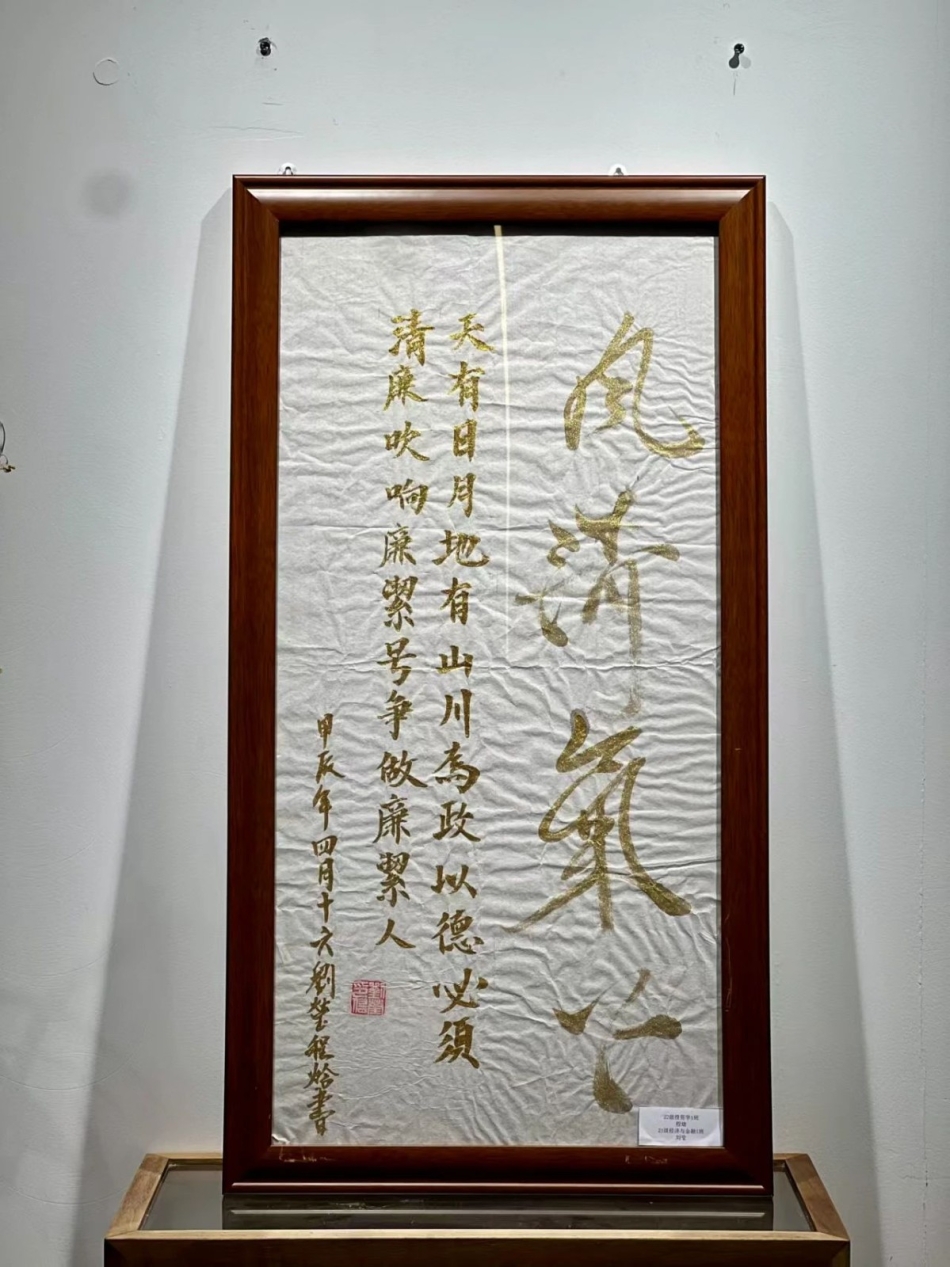 风清氣正
天有日月地有山川為政以德必須
清廉吹响廉絜号争做廉絜人
甲辰年四月十六劉莹程焓書